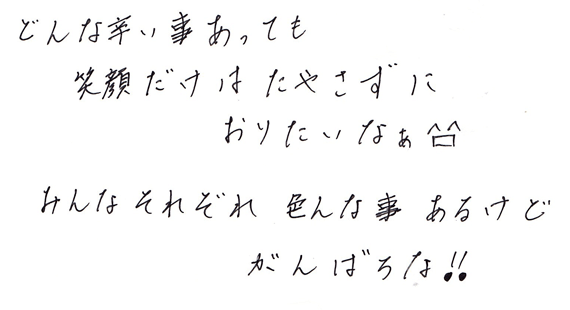 どんな辛い事あっても
笑顔だけはたやさずに
おりたいなぁ^口^
みんなそれぞれ 色んな事 あるけど
がんばろな!!